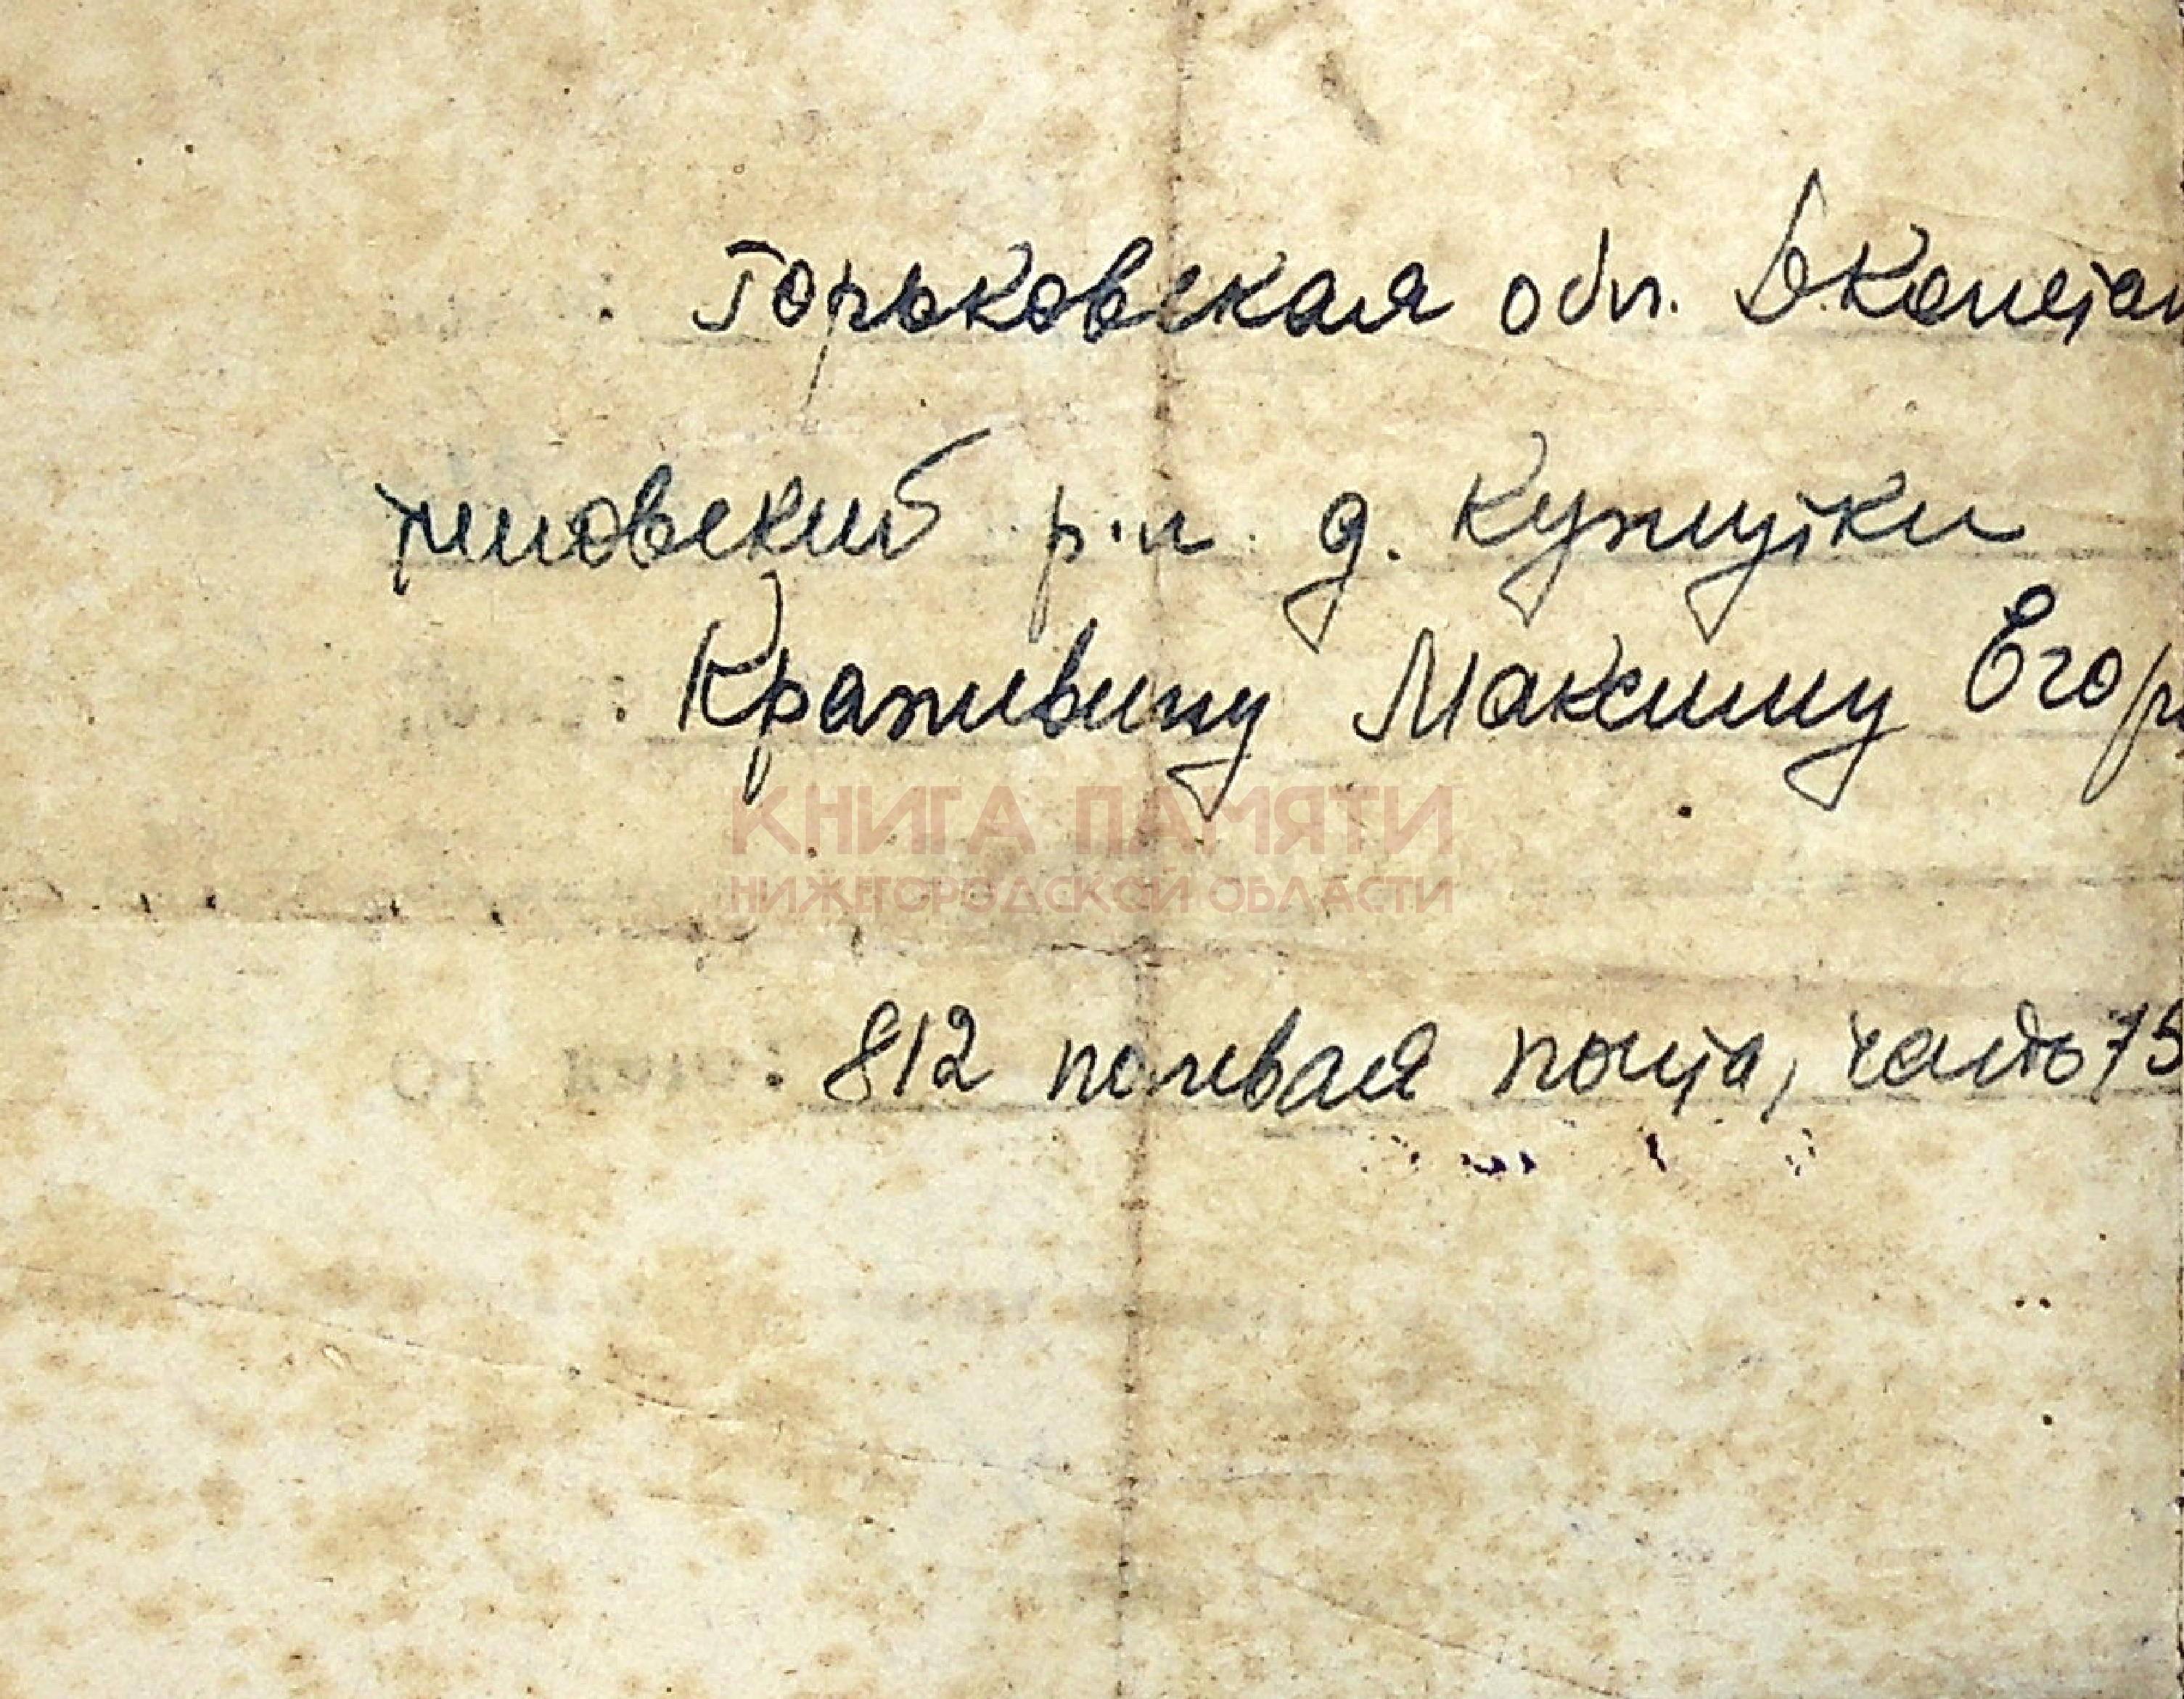 Горьковская обл. Б.Констан
тиновский р-н д. Кужутки
Краживину Максиму Егор
КНИГА ПАМЯТИ
НИЖЕГОРОДСКОЙ ОБЛАСТИ
От кого: 812 полевая почта, часть 75